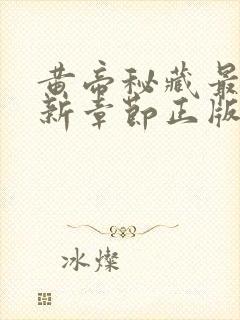 黄帝秘藏最
新章节正版
冰燦